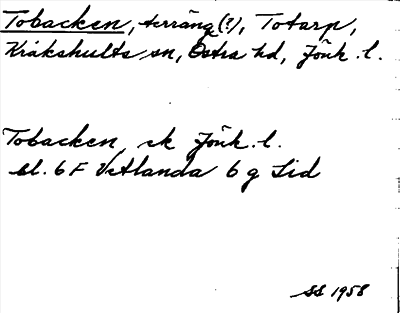 Tobacken, terräng(?), Totarp,
Kråkshults sn, Östra hd, Jönk. l.
Tobacken, ek Jönk. l.
bl. 6 F Vetlanda 6 g Lid
SS 1958